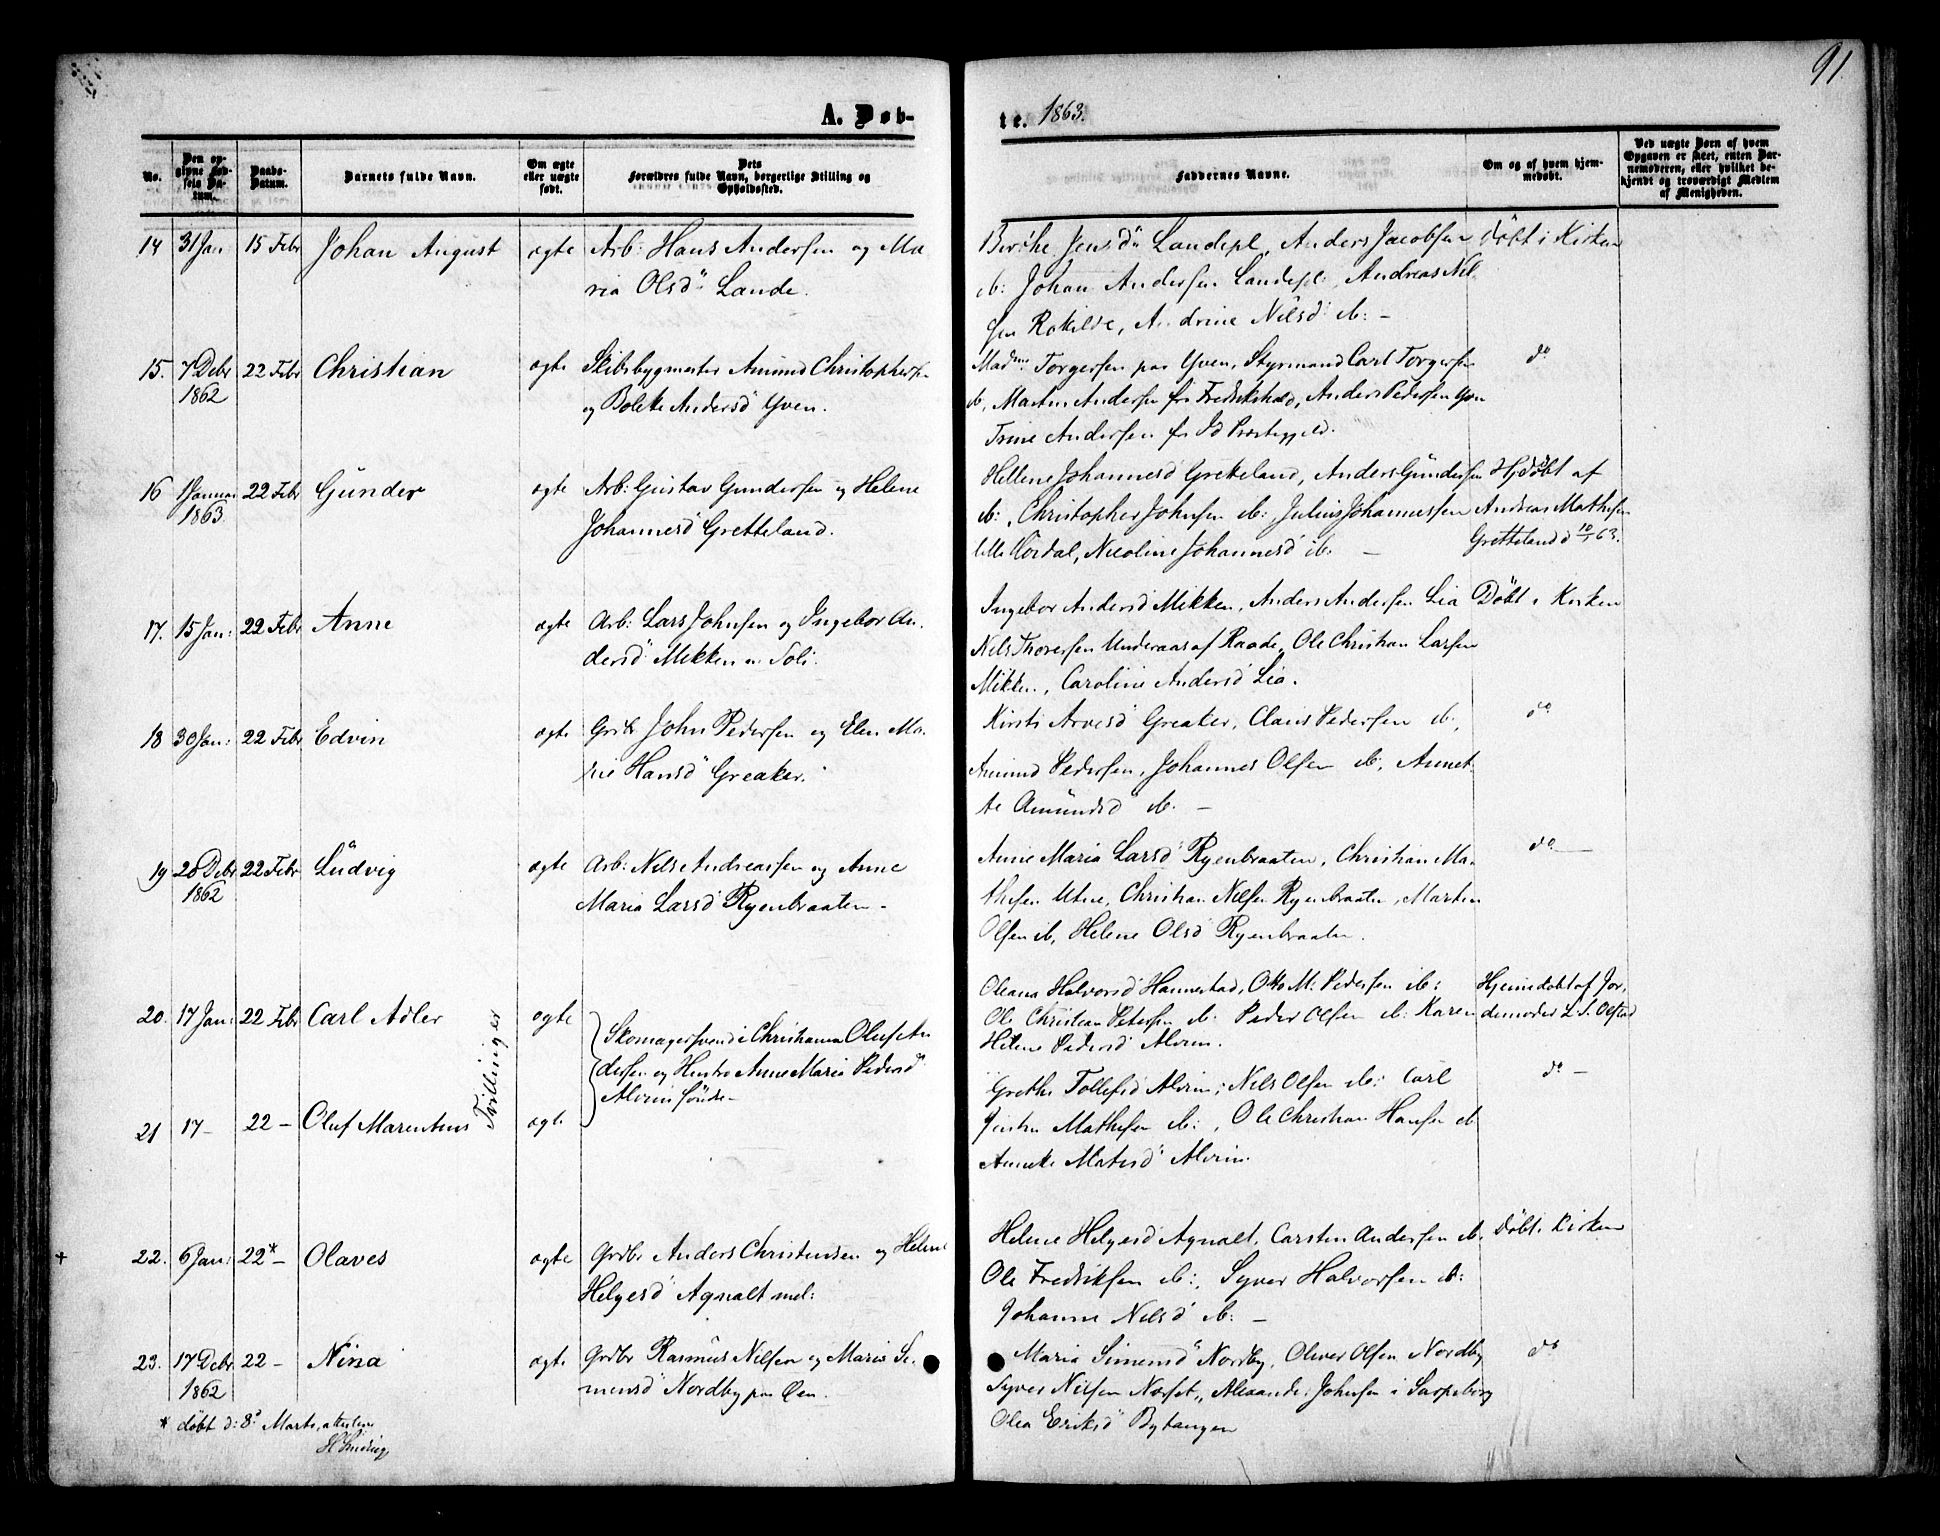 91.
A. Døb-
te. 1863.
No.
Den opgivne Fødsels Datum.
Daabs-Datum.
Barnets fulde Navn.
Om ægte eller uægte født.
Dets Forældres fulde Navn, borgerlige Stilling og Opholdssted.
Faddernes Navne.
Om og af hvem hjemmedøbt.
Ved uægte Børn af hvem Opgaven er skeet, enten Barnemoderen, eller hvilket bekjendt og troværdigt Medlem af Menigheden.
14 31 Jan 15 Febr Johan August ægte Arb: Hans Andersen og Ma-
ria Olsd Lande.
Jensd Landepl, Anders Jacobsen
ib: Johan Andersen Landepl:, Andreas Nil-
sen Rokilde, Andrine Nilsd ib: -
Døbt i Kirken
15. 7 Debr 1862 22 Febr Christian ægte Skibsbygmester Amund Christophersen
og Bolette Andersd Yven.
Madme Torgersen paa Yven, Styrmand Carl Torgersen
ib, Martin Andersen fr Fredrikshald, Anders Pedersen Yven
Trine Andersen fr Id Præstegjeld.
do
16 1 Januar 1863. 22 Febr Gunder ægte Arb: Gustav Gundersen og Helene
Johannesd Gretteland.
Hellene Johannesd Gretteland, Anders Gundersen
ib:, Christopher Johnsen ib:, Julius Johannessen
lille Kordal, Nicoline Johannesd ib: -
Hjdøbt af
Andreas Mathesen
Gretteland d 10/1 63.
17. 15 Jan: 22 Febr Anne ægte Arb: Lars Johnsen og Ingebor An-
dersd Mikken Soli.
Ingebor Andersd Mikken, Anders Andersen Lia
Nils Thoresen Underaas af Raade, Ole Christian Larsen
Mikken, Caroline Andersd Lia.
Døbt i Kirken
18 30 Jan: 22 Febr Edvin ægte Grdbr John Pedersen og Elen Ma-
rie Hansd Greaker.
Kirsti Arvesd Greaker, Claus Pedersen ib,
Amund Pedersen, Johannes Olsen ib, Annet-
te Amundsd ib. -
do
19 28 Debr 1862 22 Febr Ludvig ægte Arb: Nels Andreassen og Anne
Maria Larsd Ryenbraaten -
Anne Maria Larsd Ryenbraaten, Christian Ma-
thesen Utne, Christian Nilsen Ryenbraaten, Marten
Olsen ib, Helene Olsd Ryenbraaten.
do
20. 17 Jan: 22 Febr Carl Adler ægte
Tvillinger
Skomagersvend i Christiania Oluf An-
dersen og Hustro Anne Maria Pedersd
Alvim søndre -
Oleana Halvorsd Hannestad, Otto M: Pedersen ib:
Ole Christian Petersen ib: Peder Olsen ib: Karen
Helene Pedersd Alvim.
Hjemdøbt af Jor-
demoder L. S. Olstad
21 17 - 22 - Oluf Marentius ægte
Grethe Tollefsd Alvim, Nils Olsen ib: Carl
Mathesen ib:, Ole Christian Hansen ib
Anneke Matisd Alvim.
do -
22. 6 Jan: 22* - Olaves ægte Grdbr Anders Christensen og Helene
Helgesd Agnalt mel:
Helene Helgesd Agnalt, Carsten Andersen ib,
Ole Fredriksen ib:, Syver Halvorsen ib:
Johanne Nelsd ib: -
Døbt i Kirken
23. 17 Debr 1862 22 - Nina ægte Grdbr Rasmus Nilsen og Maria Si-
mensd Nordby paa Øen.
Maria Simensd Nordby, Oliver Olsen Nordby
Syver Nilsen Næset, Alexander Johnsen i Sarpsborg
Olea Eriksd Bytangen
do
* døbt d: 8de Marts, attesteres